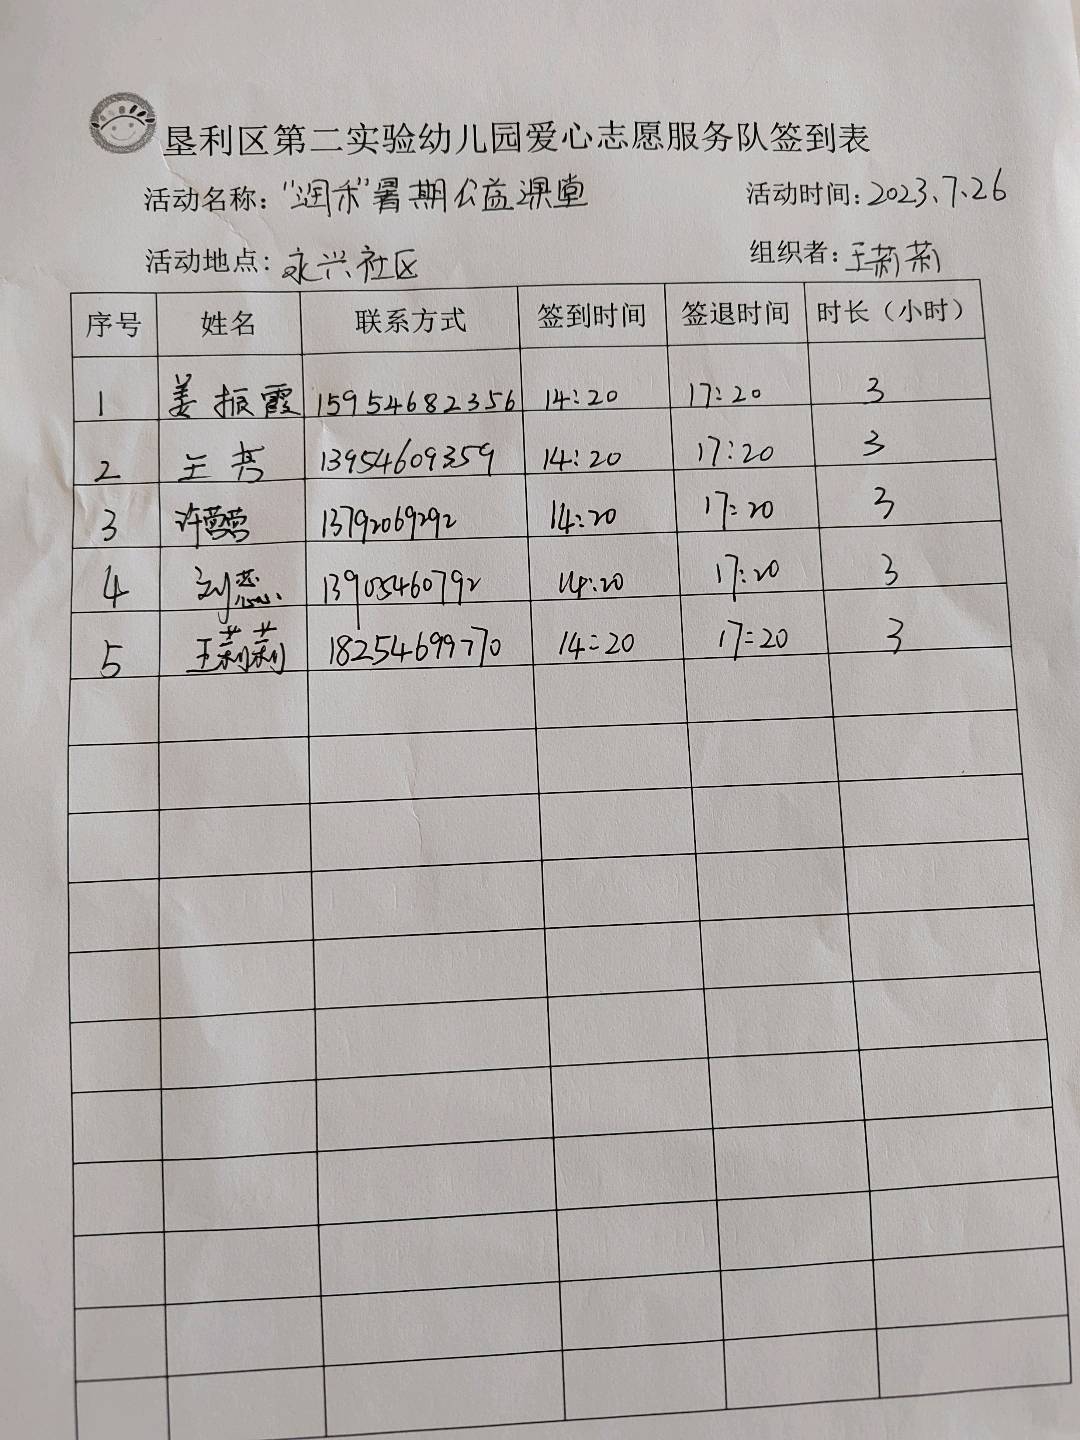 垦利区第二实验幼儿园爱心志愿服务队签到表
活动名称：“润禾”暑期公益课堂 活动时间：2023、7、26
活动地点：永兴社区 组织者：王莉莉
序号 姓名 联系方式 签到时间 签退时间 时长（小时）
1 姜振霞 15954682356 14:20 17:20 3
2 王芳 13954609359 14:20 17:20 3
3 许莹莹 13792069292 14:20 17:20 3
4 刘蕊 13905460792 14:20 17:20 3
5 王莉莉 18254699770 14:20 17:20 3